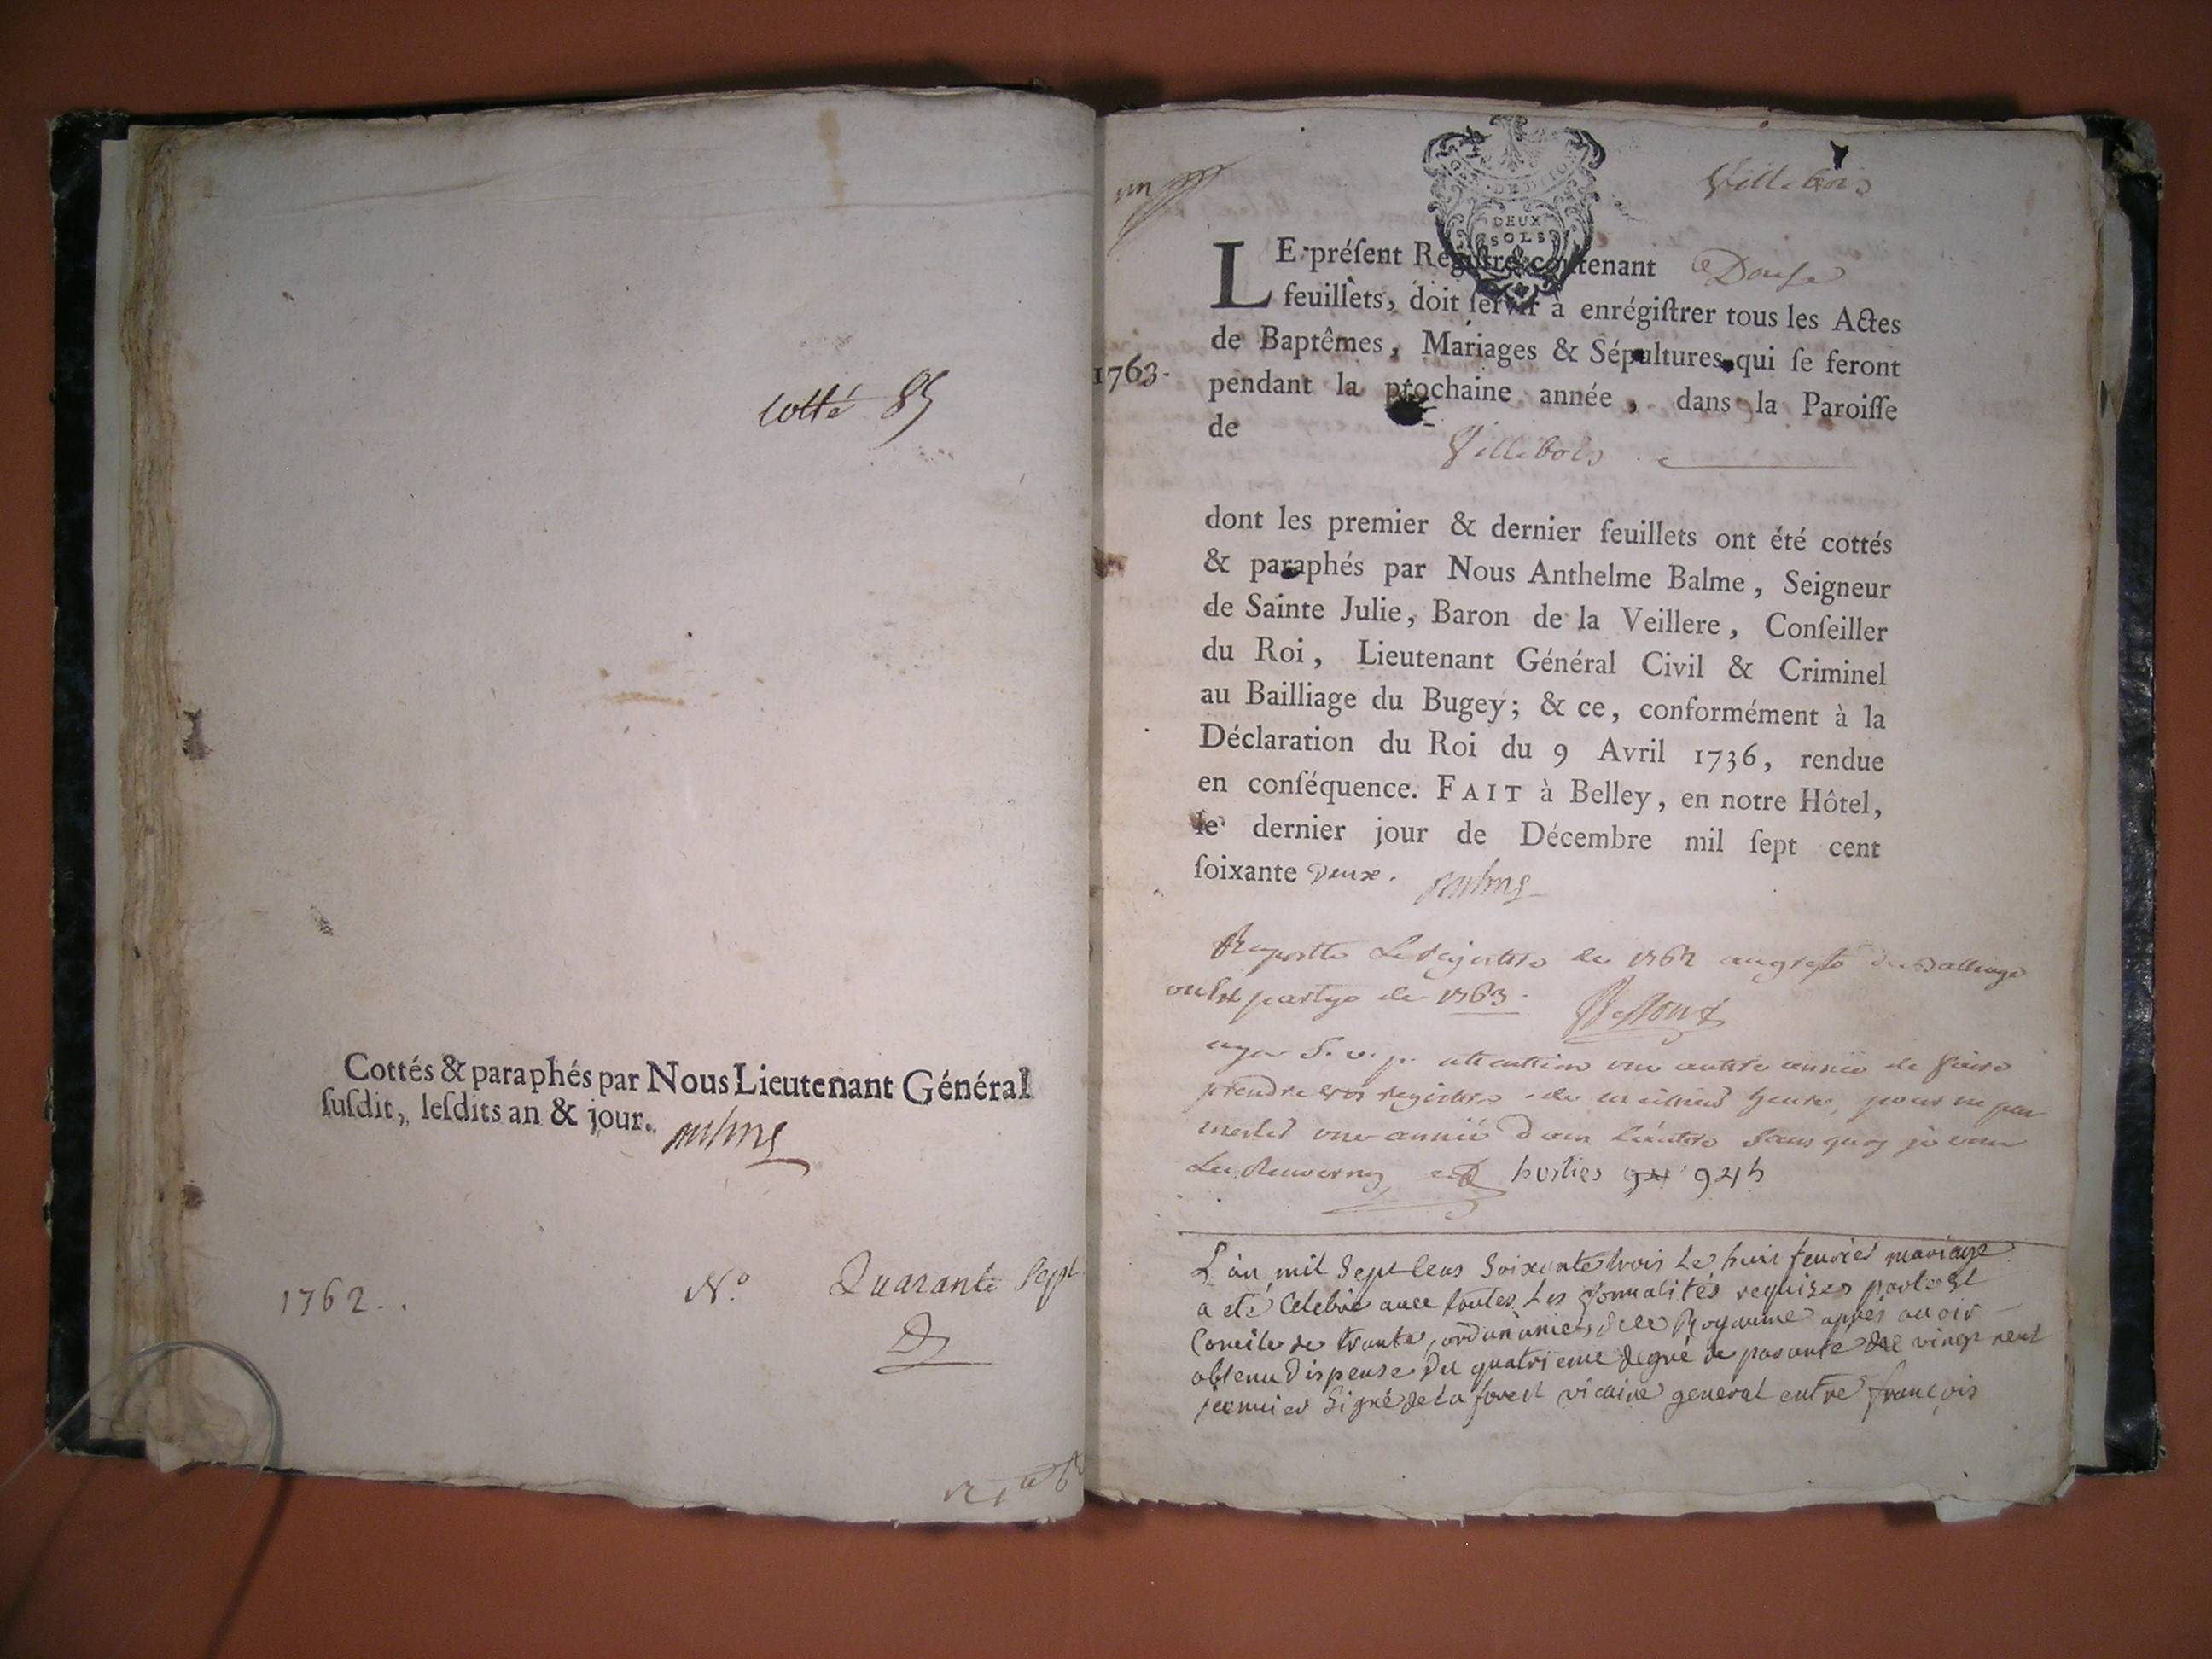 cotté 85
Cottés & paraphés par Nous Lieutenant Général
ſuſdit, leſdits an & jour.
1762..
N.º Quarante Sept
un
DEUX
SOLS
Villebois
LE préſent Regiſtre contenant Douſe
feuillets, doit ſervir à enrégiſtrer tous les Actes
de Baptêmes, Mariages & Sépultures qui ſe feront
1763.
pendant la prochaine année, dans la Paroiſſe
de
Villebois
dont les premier & dernier feuillets ont été cottés
& paraphés par Nous Anthelme Balme, Seigneur
de Sainte Julie, Baron de la Veillere, Conſeiller
du Roi, Lieutenant Général Civil & Criminel
au Bailliage du Bugey; & ce, conformément à la
Déclaration du Roi du 9 Avril 1736, rendue
en conſéquence. FAIT à Belley, en notre Hôtel,
le dernier jour de Décembre mil ſept cent
ſoixante Deux.
de 1762 au greffe du Balliage
de 1763.
ayez S. v. p. attention une autre année de faire
prendre vos registres de meilleure heure, pour ne pas
une année dans l'autre sans quoy je vous
hosties 924
L'an mil Sept Cens Soixante trois Le huit feurier mariage
a eté Celebré auec toutes Les formalités requises par le St
Concile de trante, ordonances de ce Royaume appres auoir
obtenu Dispense Du quatrieme degré de parante de vingt neuf
jeanuier Signé de La forest vicaire general entre françois